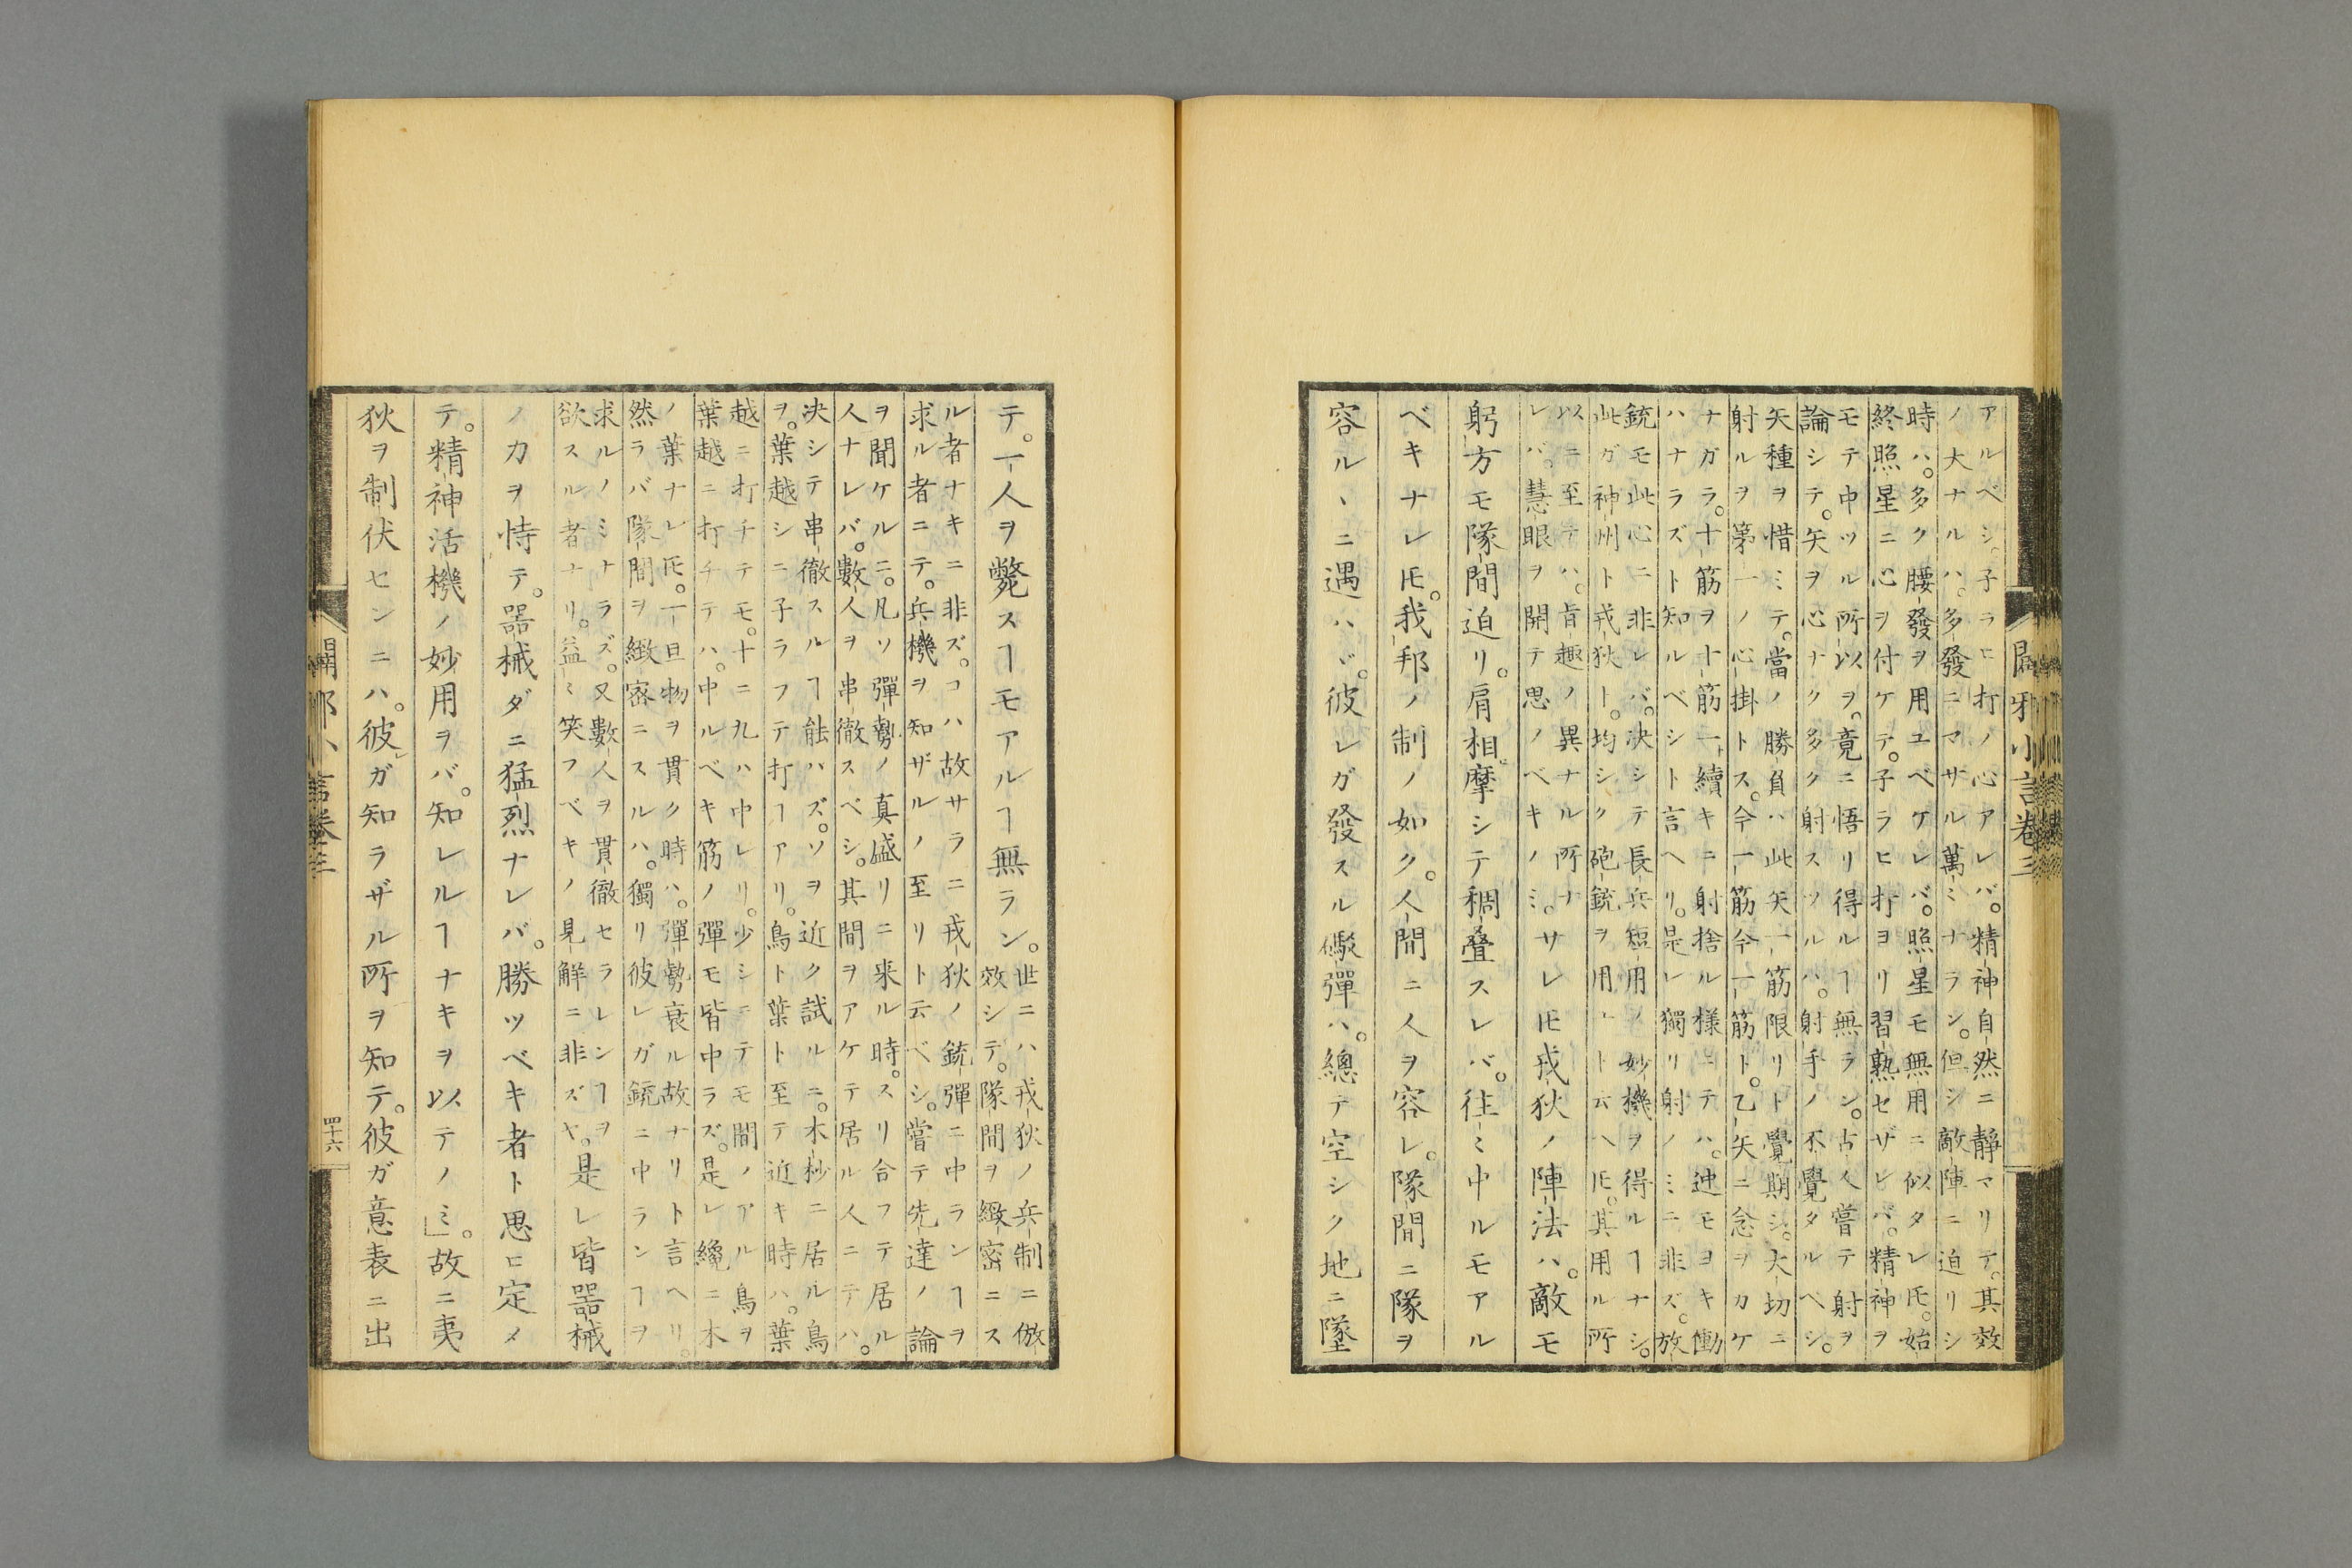 アルベシ。子ラヒ打ノ心アレバ。精神自然ニ靜マリテ。其效
ノ大ナルハ。多發ニマサル萬ミナラン。但シ敵陣ニ迫リシ
時ハ。多ク腰發ヲ用ユベケレバ。照星モ無用ニ似タレ𪜈。始
終照星ニ心ヲ付ケテ。子ラヒ打ヨリ習熟セザレバ。精神ヲ
モテ中ツル所以ヲ。竟ニ悟リ得ルヿ無ラン。古人嘗テ射ヲ
論シテ。矢ヲ心ナク多ク射スツルハ。射手ノ不覺タルベシ。
矢種ヲ惜ミテ。當ノ勝負ハ此矢一筋限リト覺期シ。大切ニ
射ルヲ第一ノ心掛トス。今一筋今一筋ト。乙矢ニ念ヲカケ
ナガラ。十筋ヲ十筋一續キニ射捨ル樣ニテハ。迚モヨキ働
ハナラズト知ルベシト言ヘリ。是レ獨リ射ノミニ非ズ。放
銃モ此心ニ非レバ。決シテ長兵短用ノ妙機ヲ得ルヿナシ。
此ガ神州ト戎狄ト。均シク砲銃ヲ用ルト云ヘ𪜈。其用ル所
以ニ至テハ。肯趣ノ異ナル所ナ
レバ。慧眼ヲ開テ思ノベキノミ。
サレ𪜈戎狄ノ陣法ハ。敵モ
躬方モ隊間迫リ。肩相摩シテ稠疊スレバ。往ミ中ルモアル
ベキナレ𪜈。我邦ノ制ノ如ク。人間ニ人ヲ容レ。隊間ニ隊ヲ
容ルヽニ遇ハヾ。彼レガ發スル礟彈ハ。總テ空シク地ニ墜
闢邪小言卷三
テ。一人ヲ斃スヿモアルヿ無ラン。
世ニハ戎狄ノ兵制ニ倣
效シテ。隊間ヲ緻密ニス
ル者ナキニ非ズ。コハ故サラニ戎狄ノ銃彈ニ中ランヿヲ
求ル者ニテ。兵機ヲ知ザルノ至リト云ベシ。嘗テ先達ノ論
ヲ聞ケルニ。凡ソ彈勢ノ真盛リニ来ル時。スリ合フテ居ル
人ナレバ。數人ヲ串徹スベシ。其間ヲアケテ居ル人ニテハ。
決シテ串徹スルヿ能ハズ。ソヲ近ク試ルニ。木杪ニ居ル鳥
ヲ。葉越シニ子ラフテ打ヿアリ。鳥ト葉ト至テ近キ時ハ。葉
越ニ打チテモ。十ニ九ハ中レリ。少シニテモ間ノアル鳥ヲ
葉越ニ打チテハ。中ルベキ筋ノ彈モ皆中ラズ。是レ纔ニ木
ノ葉ナレ𪜈。一旦物ヲ貫ク時ハ。彈勢衰ル故ナリト言ヘリ。
然ラバ隊間ヲ緻密ニスルハ。獨リ彼レガ銃ニ中ランヿヲ
求ルノミナラズ。又數人ヲ貫徹セラレンヿヲ
欲スル者ナリ。益ミ笑フベキノ見解ニ非ズヤ。
是レ皆器械
ノカヲ恃テ。器械ダニ猛烈ナレバ。勝ツベキ者ト思ヒ定メ
テ。精神活機ノ妙用ヲバ。知レルヿナキヲ以テノミ」。故ニ夷
狄ヲ制伏センニハ。彼」ガ知ラザル所ヲ知テ。彼ガ意表ニ出
闢邪小言卷三
四十六